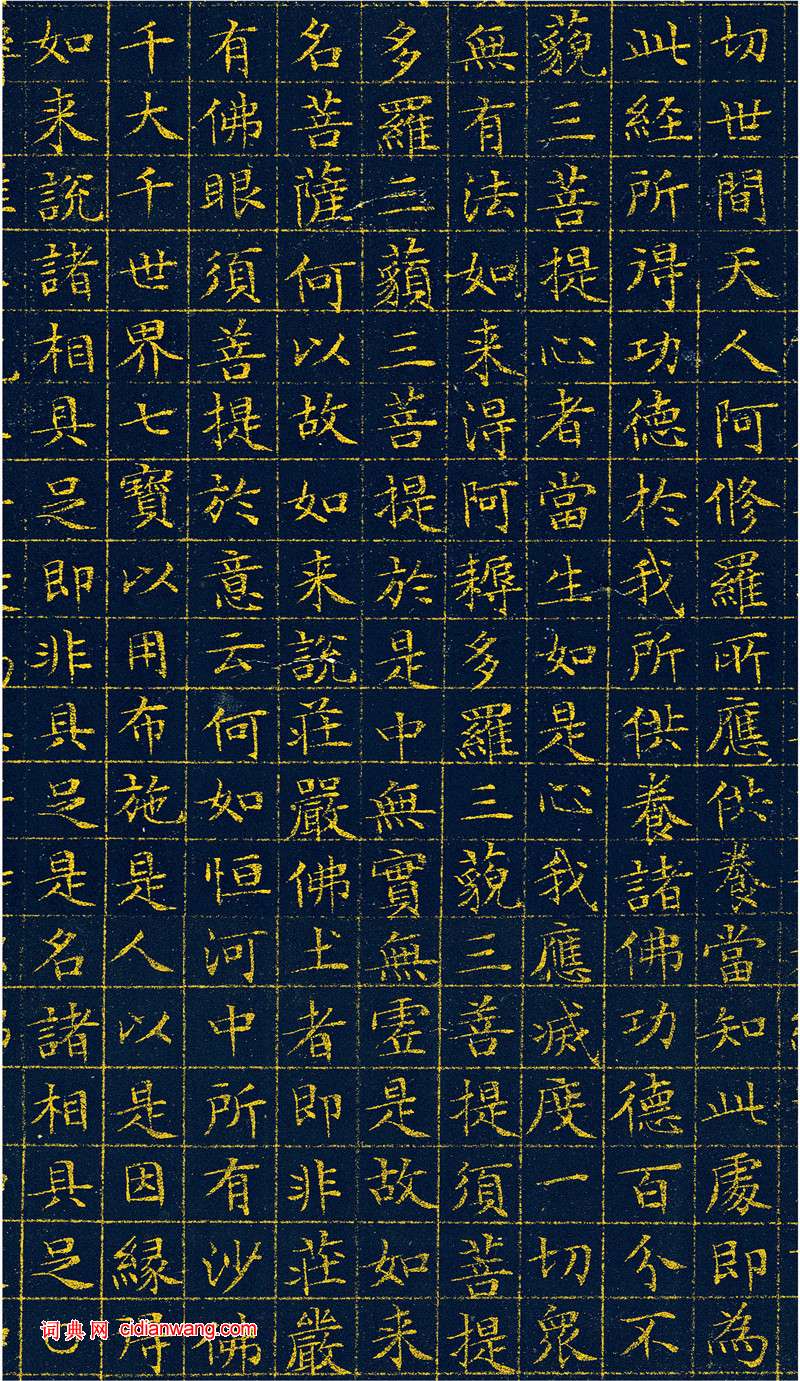 切世間天人阿修羅所應供養當知此處即為
此経所得功德於我所供養諸佛功德百分不
藐三菩提心者當生如是心我應滅度一切眾
無有法如来得阿耨多羅三藐三菩提須菩提
多羅二藐三菩提於是中無實無虛是故如来
名菩薩何以故如来說莊嚴佛土者即非莊嚴
有佛眼須菩提於意云何如恒河中所有沙佛
千大千世界七寶以用布施是人以是因縁得
如来說諸相具足即非具足是名諸相具足
词典网 cidianwang.com